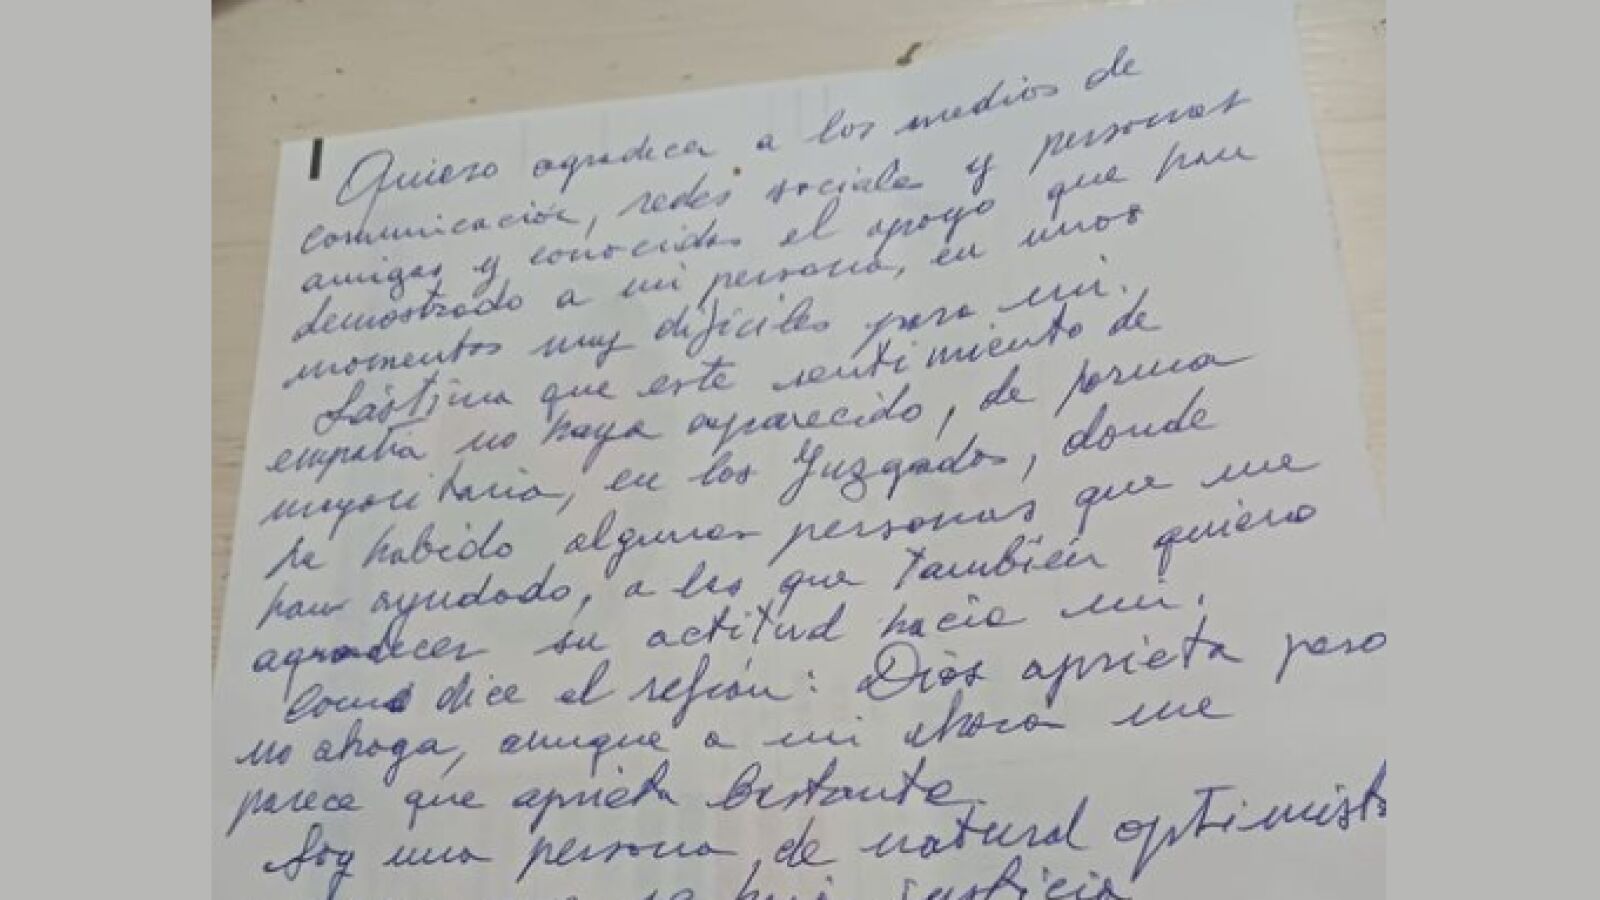 Quiero agradecer a los medios de
comunicación, redes sociale y personas
amigas y conocidas el apoyo que han
demostrado a mi persona, en unos
momentos muy difíciles para mi.
Lástima que este sentimiento de
empatía no haya aparecido, de forma
mayoritaria, en los Juzgados, donde
ha habido algunas personas que me
han ayudado, a las que también quiero
agradecer su actitud hacia mi.
Como dice el refrán: Dios aprieta pero
no ahoga, aunque a mi ahora me
parece que aprieta bastante.
Soy una persona, de natural optimista
justicia